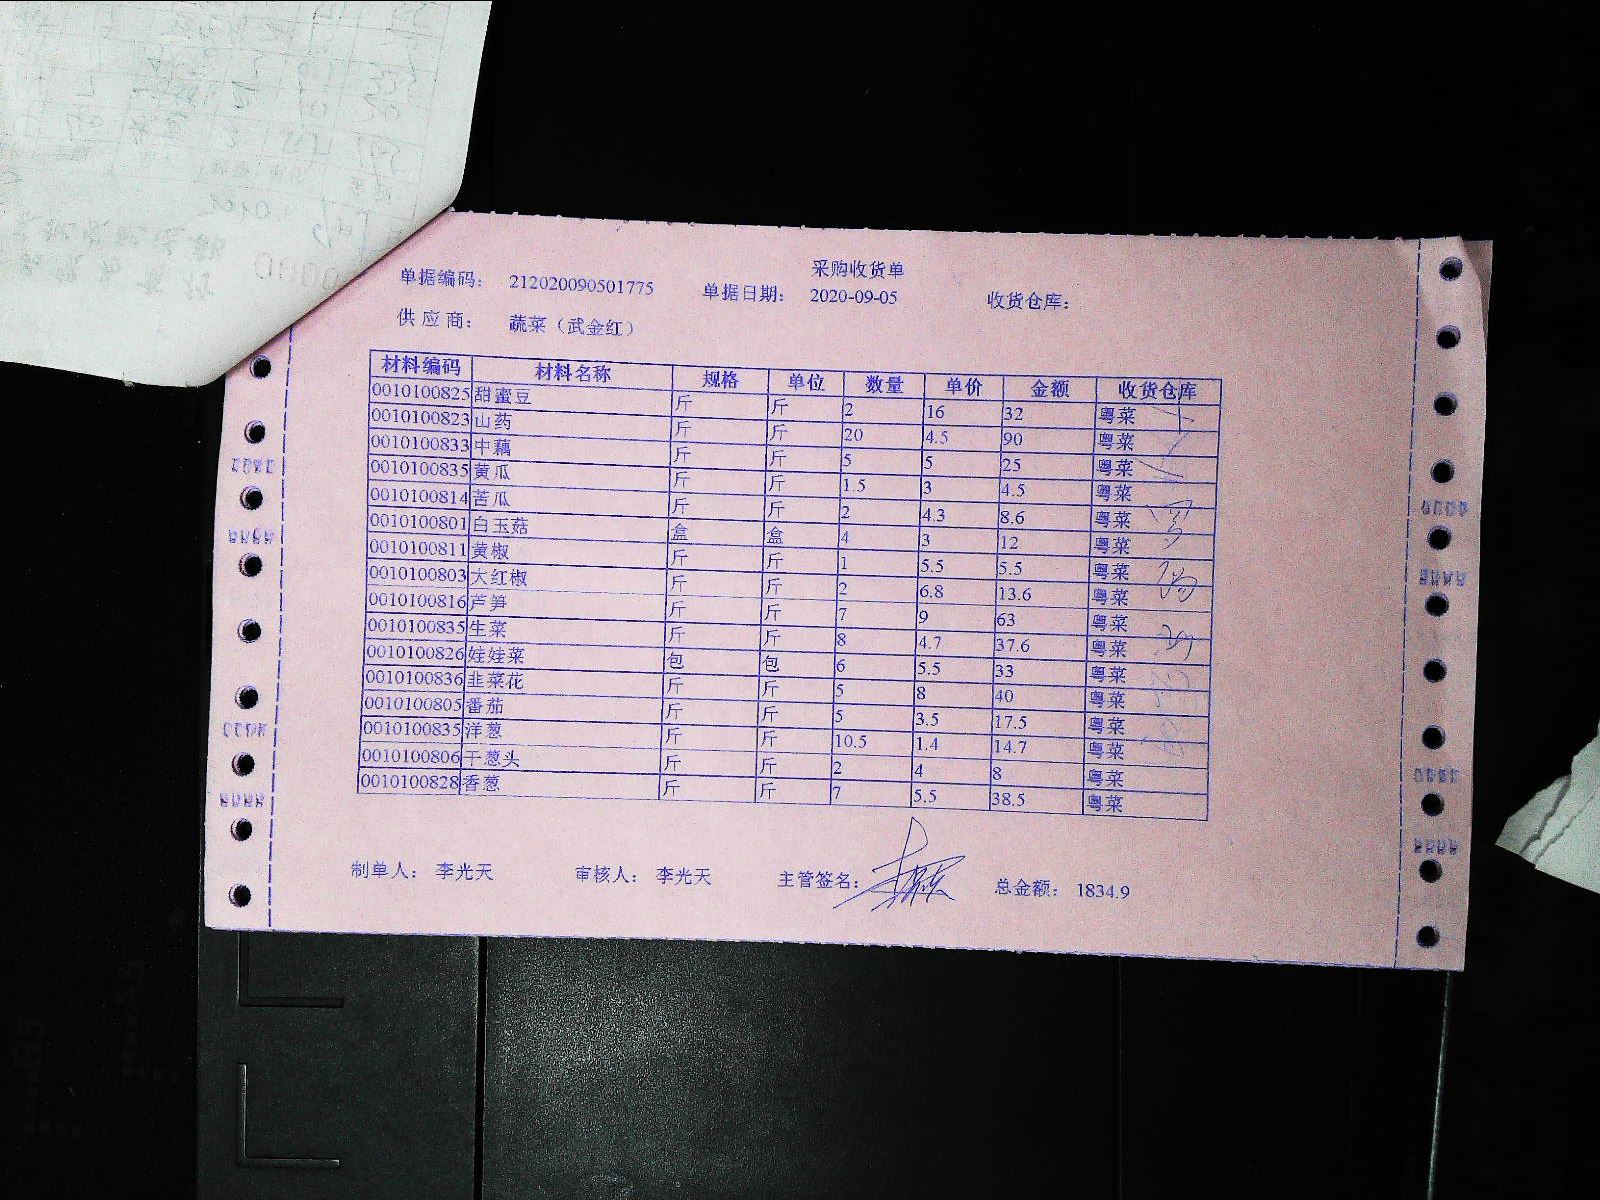 采购收货单
单据编码： 212020090501775 单据日期： 2020-09-05 收货仓库：
供 应 商： 蔬菜（武金红）
材料编码 材料名称 规格 单位 数量 单价 金额 收货仓库
0010100825 甜蜜豆 斤 斤 2 16 32 粤菜
0010100823 山药 斤 斤 20 4.5 90 粤菜
0010100833 中藕 斤 斤 5 5 25 粤菜
0010100835 黄瓜 斤 斤 1.5 3 4.5 粤菜
0010100814 苦瓜 斤 斤 2 4.3 8.6 粤菜
0010100801 白玉菇 盒 盒 4 3 12 粤菜
0010100811 黄椒 斤 斤 1 5.5 5.5 粤菜
0010100803 大红椒 斤 斤 2 6.8 13.6 粤菜
0010100816 芦笋 斤 斤 7 9 63 粤菜
0010100835 生菜 斤 斤 8 4.7 37.6 粤菜
0010100826 娃娃菜 包 包 6 5.5 33 粤菜
0010100836 韭菜花 斤 斤 5 8 40 粤菜
0010100805 番茄 斤 斤 5 3.5 17.5 粤菜
0010100835 洋葱 斤 斤 10.5 1.4 14.7 粤菜
0010100806 干葱头 斤 斤 2 4 8 粤菜
0010100828 香葱 斤 斤 7 5.5 38.5 粤菜
制单人： 李光天 审核人： 李光天 主管签名： 总金额： 1834.9